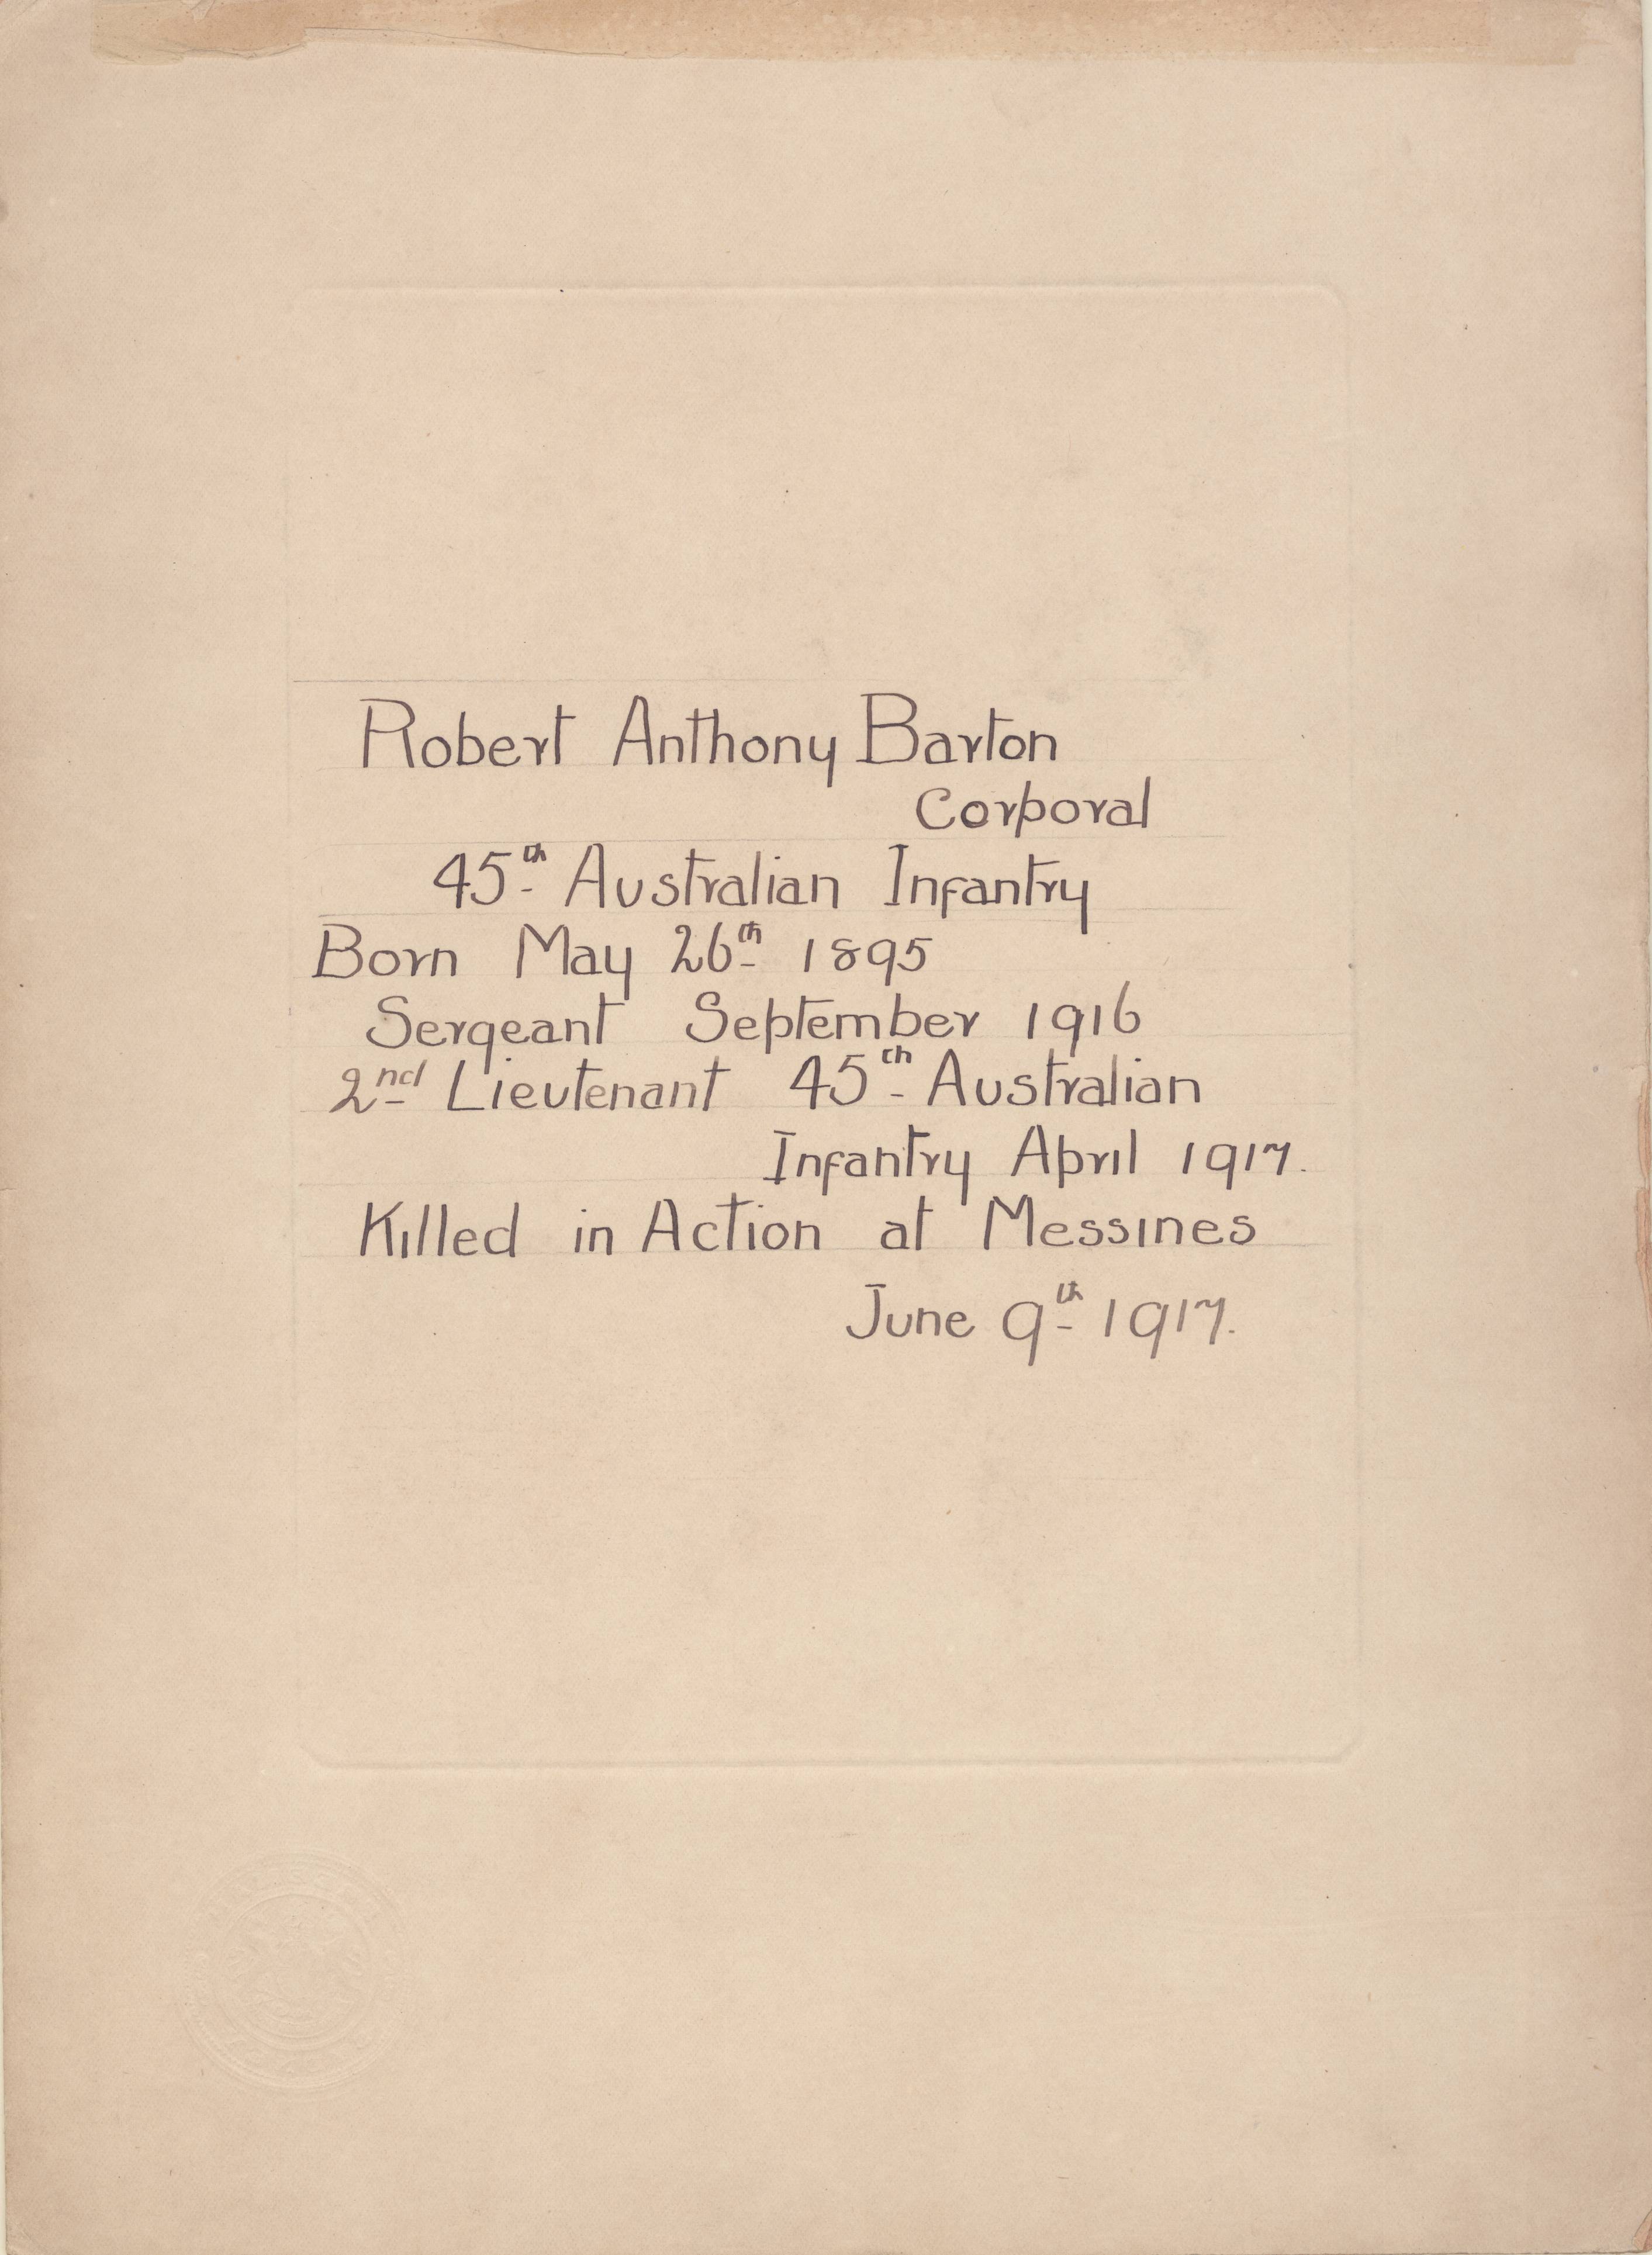 Robert Anthony Barton
Corporal
45th Australian Infantry
Born May 26th 1895
Sergeant September 1916
2nd Lieutenant 45th Australian
Infantry April 1917.
Killed in Action at Messines
June 9th 1917.